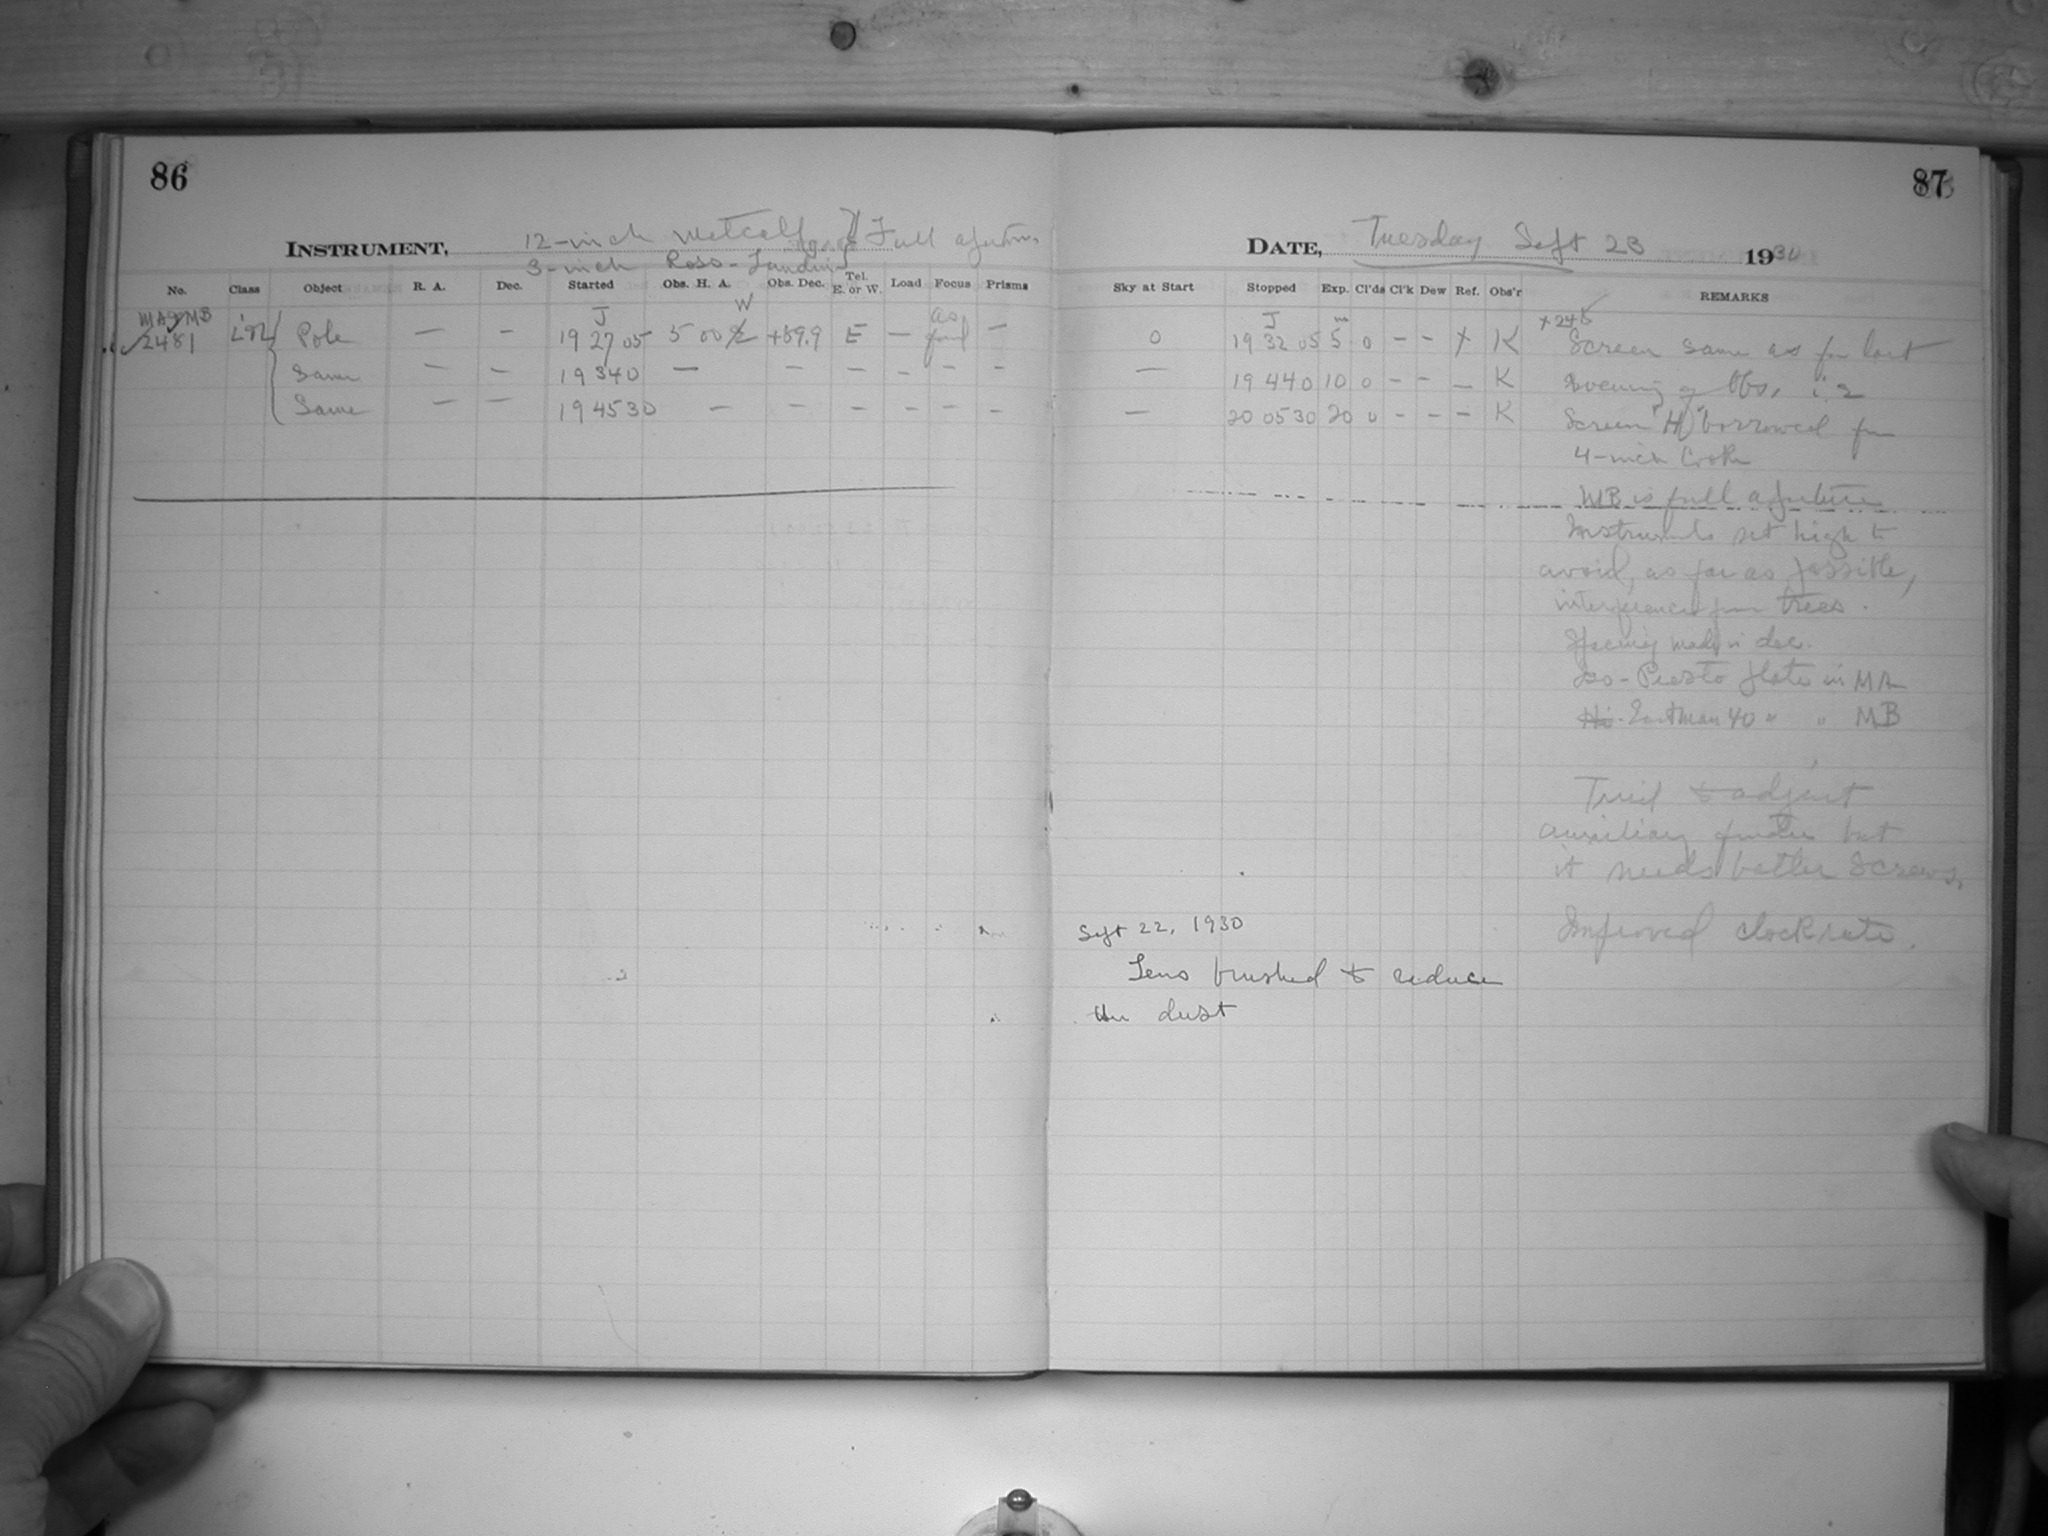 86
87
INSTRUMENT, 12-inch Metcalf Full aperture
3-inch Ross-Lundin
DATE, Tuesday Sept 23 1930
No. Class Object R. A. Dec. Started Obs. H. A. Obs. Dec. Tel. E. or W. Load Focus Prisms
Sky at Start Stopped Exp. Cl'ds Cl'k Dew Ref. Obs'r REMARKS
MA & MB J W as J m +24.5
2481 Pole — — 19 27 05 5 00 +89.9 E — found —
0 19 32 05 5 0 — — + K Screen same as for last
Same — — 19 34 0 — — — — — —
— 19 44 0 10 0 — — — K evening of Obs, i.e
Same — — 19 45 30 — — — — — —
— 20 05 30 20 0 — — — K Screen "H" borrowed from
4-inch Cooke
MB is full aperture
Instruments set high to
avoid, as far as possible,
interference from trees.
Spacing made in dec.
Iso-Presto plate in MA
Eastman 40 " " MB
Tried to adjust
auxiliary finder but
it needs better screws.
Improved clock rate.
Sept 22, 1930
Lens brushed to reduce
the dust